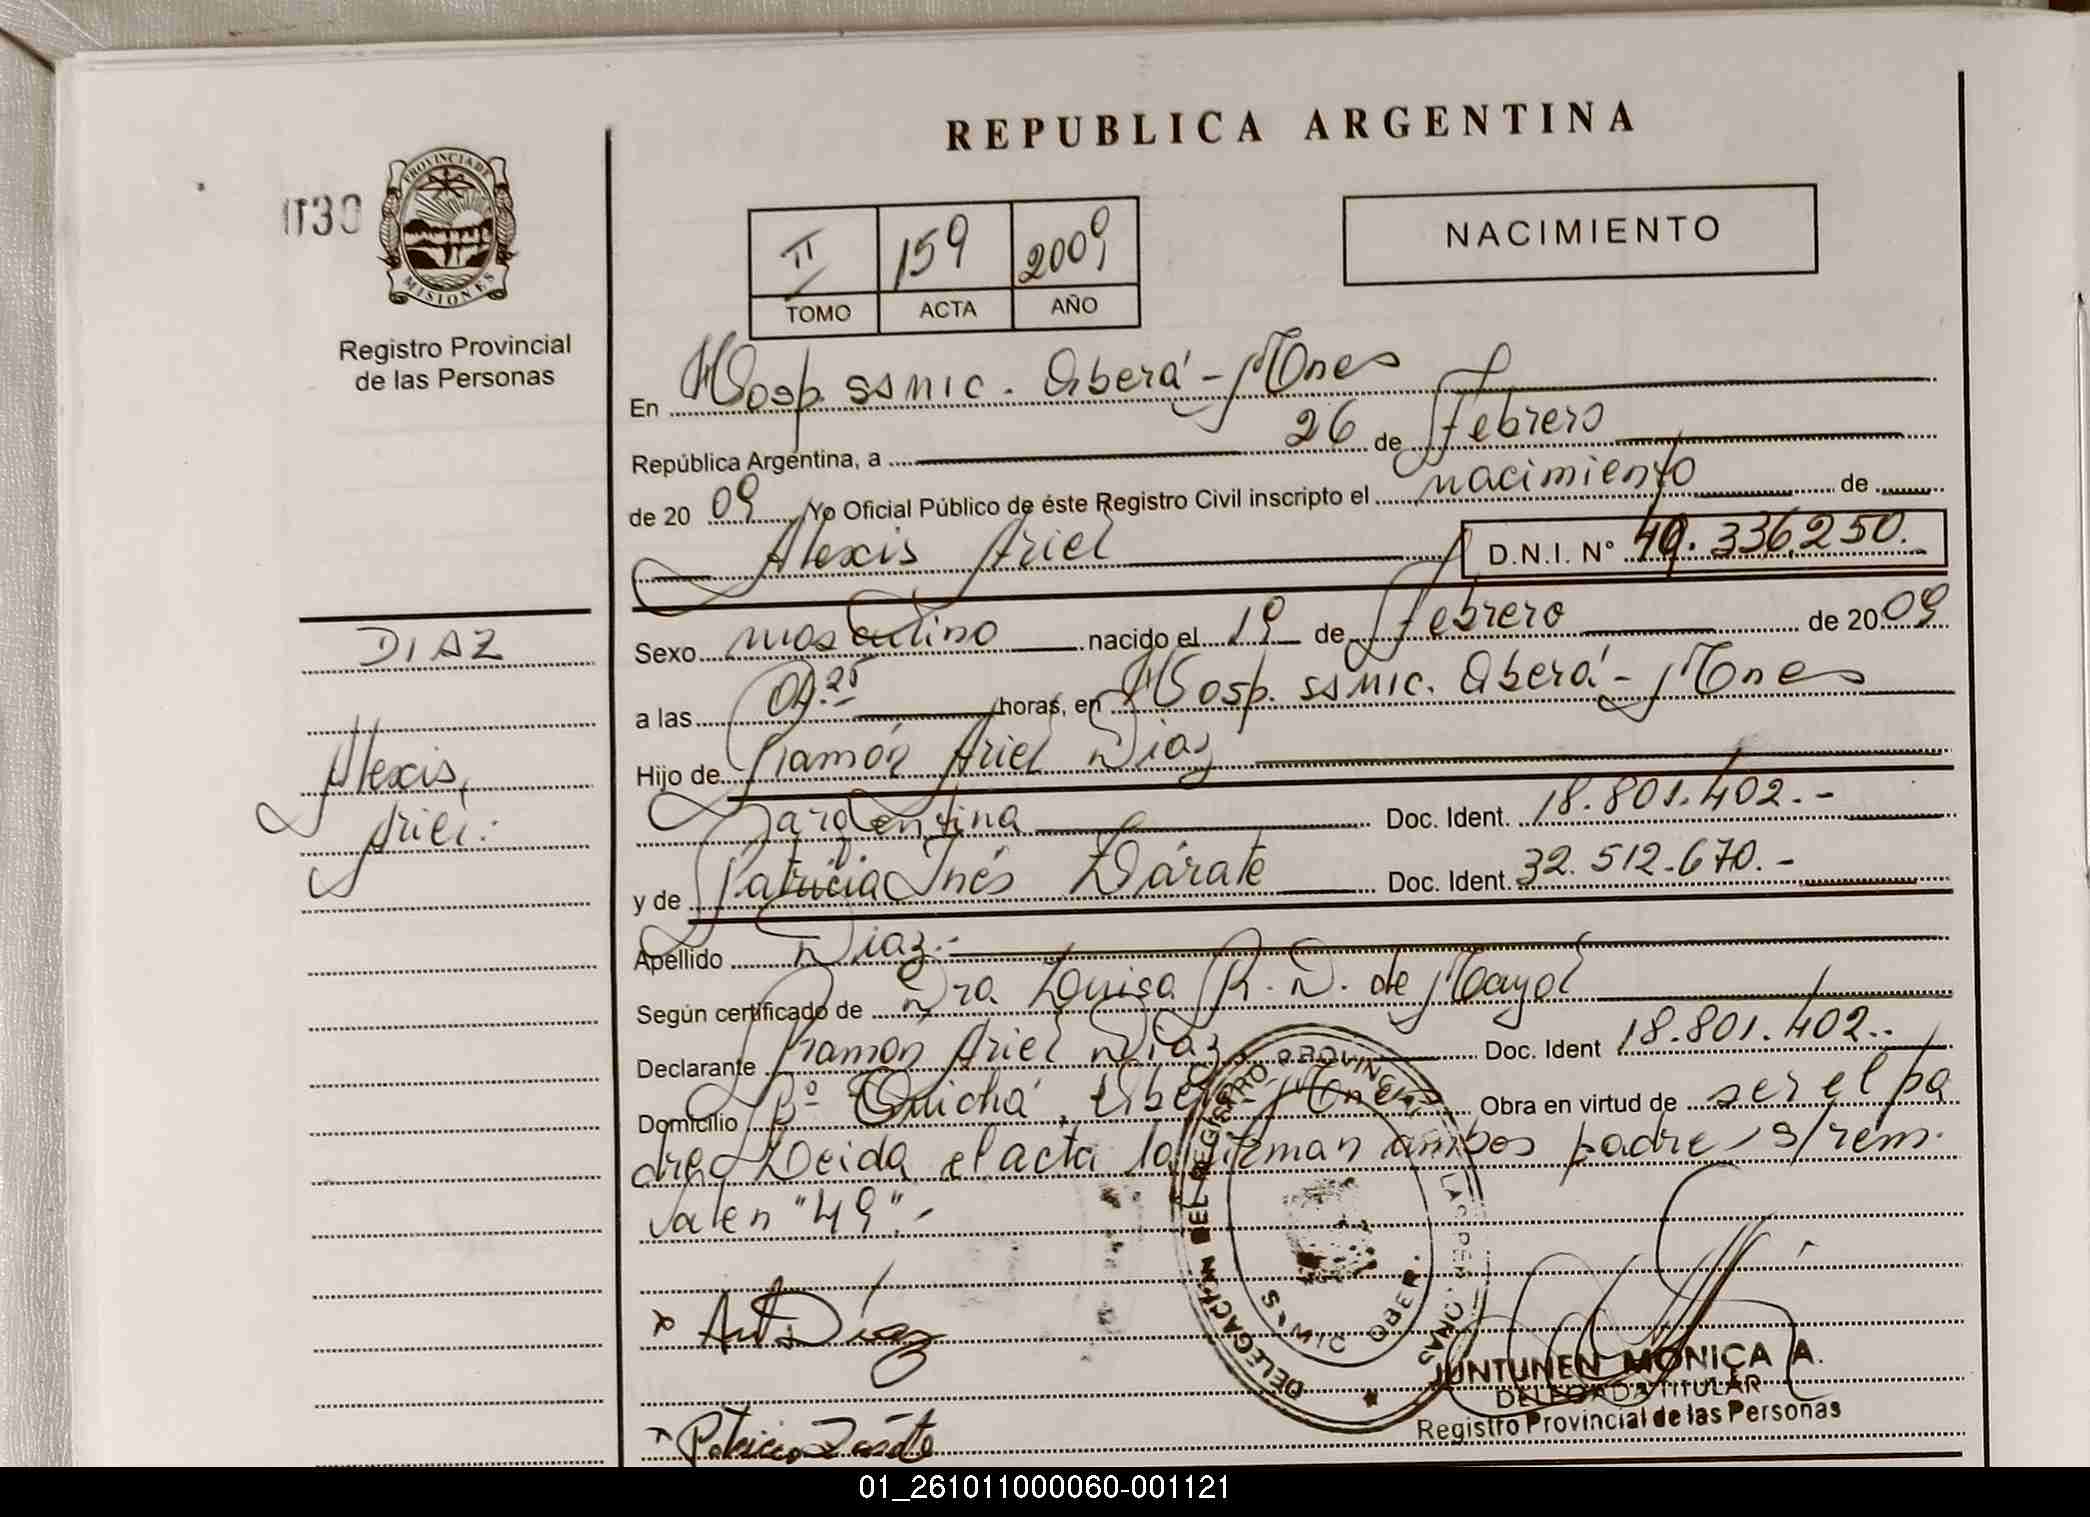 REPUBLICA ARGENTINA
PROVINCIA DE
MISIONES
Registro Provincial
de las Personas
II 159 2009
TOMO ACTA AÑO
NACIMIENTO
En Hosp. SSMIC. Oberá - Mnes
República Argentina, a 26 de Febrero
de 2009 Yo Oficial Público de éste Registro Civil inscripto el nacimiento de
Alexis Ariel D.N.I. Nº 49.336.250.
DIAZ
Alexis
Ariel.
Sexo masculino nacido el 19 de Febrero de 2009
a las horas, en Hosp. SSMIC. Oberá - Mnes
Hijo de Ramón Ariel Diaz
argentina Doc. Ident. 18.801.402.-
y de Patricia Inés Zárate Doc. Ident. 32.512.670.-
Apellido Diaz.-
Según certificado de Dra. Luisa R. D. de Mayol
Declarante Ramón Ariel Diaz Doc. Ident 18.801.402.-
Domicilio Bº Quichá, Oberá - Mnes Obra en virtud de ser el pa
dre Leida el acta la firman ambos padres s/rem.
valen "49".-
x Diaz
x Patricia Zarate
DELEGACION DEL REGISTRO PROVINCIAL
DE LAS PERSONAS
SSMIC OBERA
JUNTUNEN MONICA A.
DELEGADA TITULAR
Registro Provincial de las Personas
01_261011000060-001121